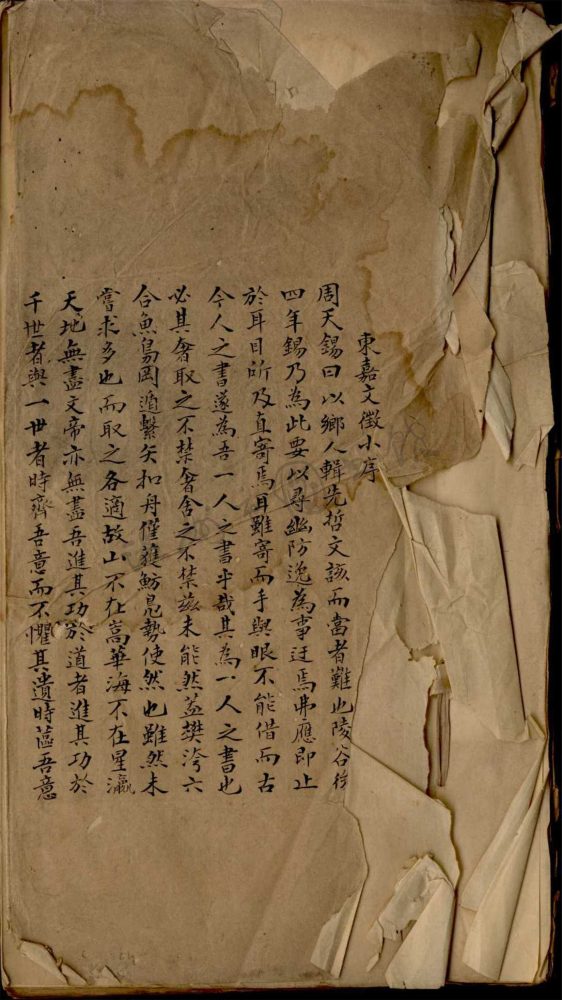 東嘉文徵小序
周天錫曰以鄉人輯先哲文該而當者難也陵谷後
四年錫乃為此要以尋幽防逸為事迂焉弗應即止
於耳目所及直寄焉耳雖寄而手與眼不能借而古
今人之書遂為吾一人之書乎哉其為一人之書也
必其奢取之不禁奢舍之不禁茲未能然蓋樊滂六
合魚鳥罔遁繫矣扣舟僅蕤魴鳧勢使然也雖然未
嘗求多也而取之各適故山不在嵩華海不在星瀛
天地無盡文帝亦無盡吾進其功於道者進其功於
千世者與一世者時齊吾意而不懼其遺時區吾意